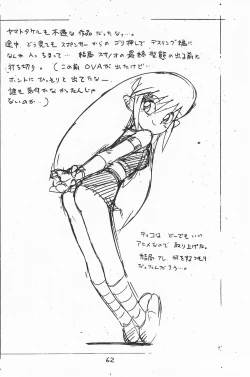 ヤマトタケルも不遇な作品だったな。。
途中、どう見てもスポンサーからのゴリ押しで デスリング編に
なんか入っちまって… 結局 スサノオの最終型態の出る前に
打ち切り。(この前OVAが出たけど…
ホントにひっそりと出てたなー
誰も気付かなかったんじゃ
ないのか…)
ティコは どーでもいい
アニメなので取り上げた。
結局 何を
だったんだろう…。
62